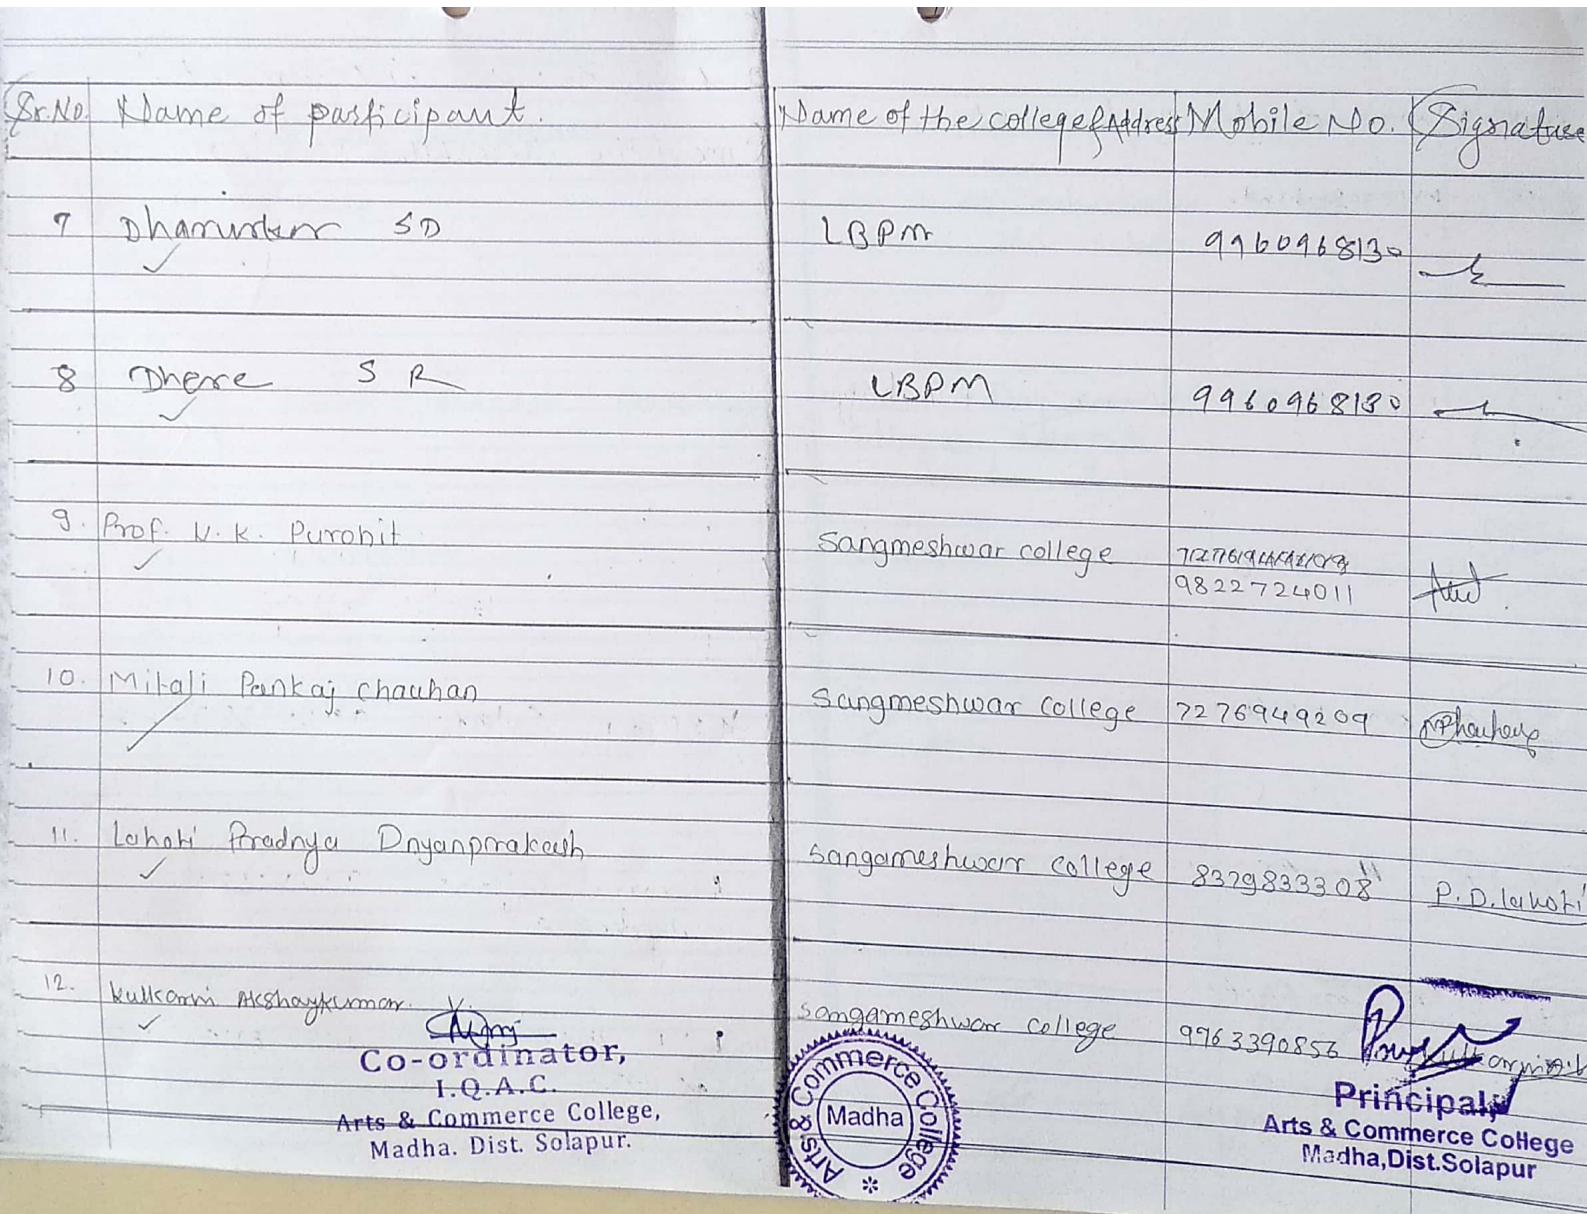 Sr.No. Name of participant. Name of the college & Address Mobile No. Signature
7 SD LBPM 9960968130
8 Dhere S R LBPM 9960968130
9. Prof. V. K. Purohit Sangmeshwar college
9822724011
10. Mitali Pankaj Chauhan Sangmeshwar college 7276949209
11. Lahoti Pradnya Dnyanprakash Sangameshwar college 8329833308 P.D.lahoti
12. Kulkarni Akshaykumar V. Sangameshwar college 9963390856
Co-ordinator,
I.Q.A.C.
Arts & Commerce College,
Madha. Dist. Solapur.
Arts & Commerce College
Madha
Principal,
Arts & Commerce College
Madha,Dist.Solapur